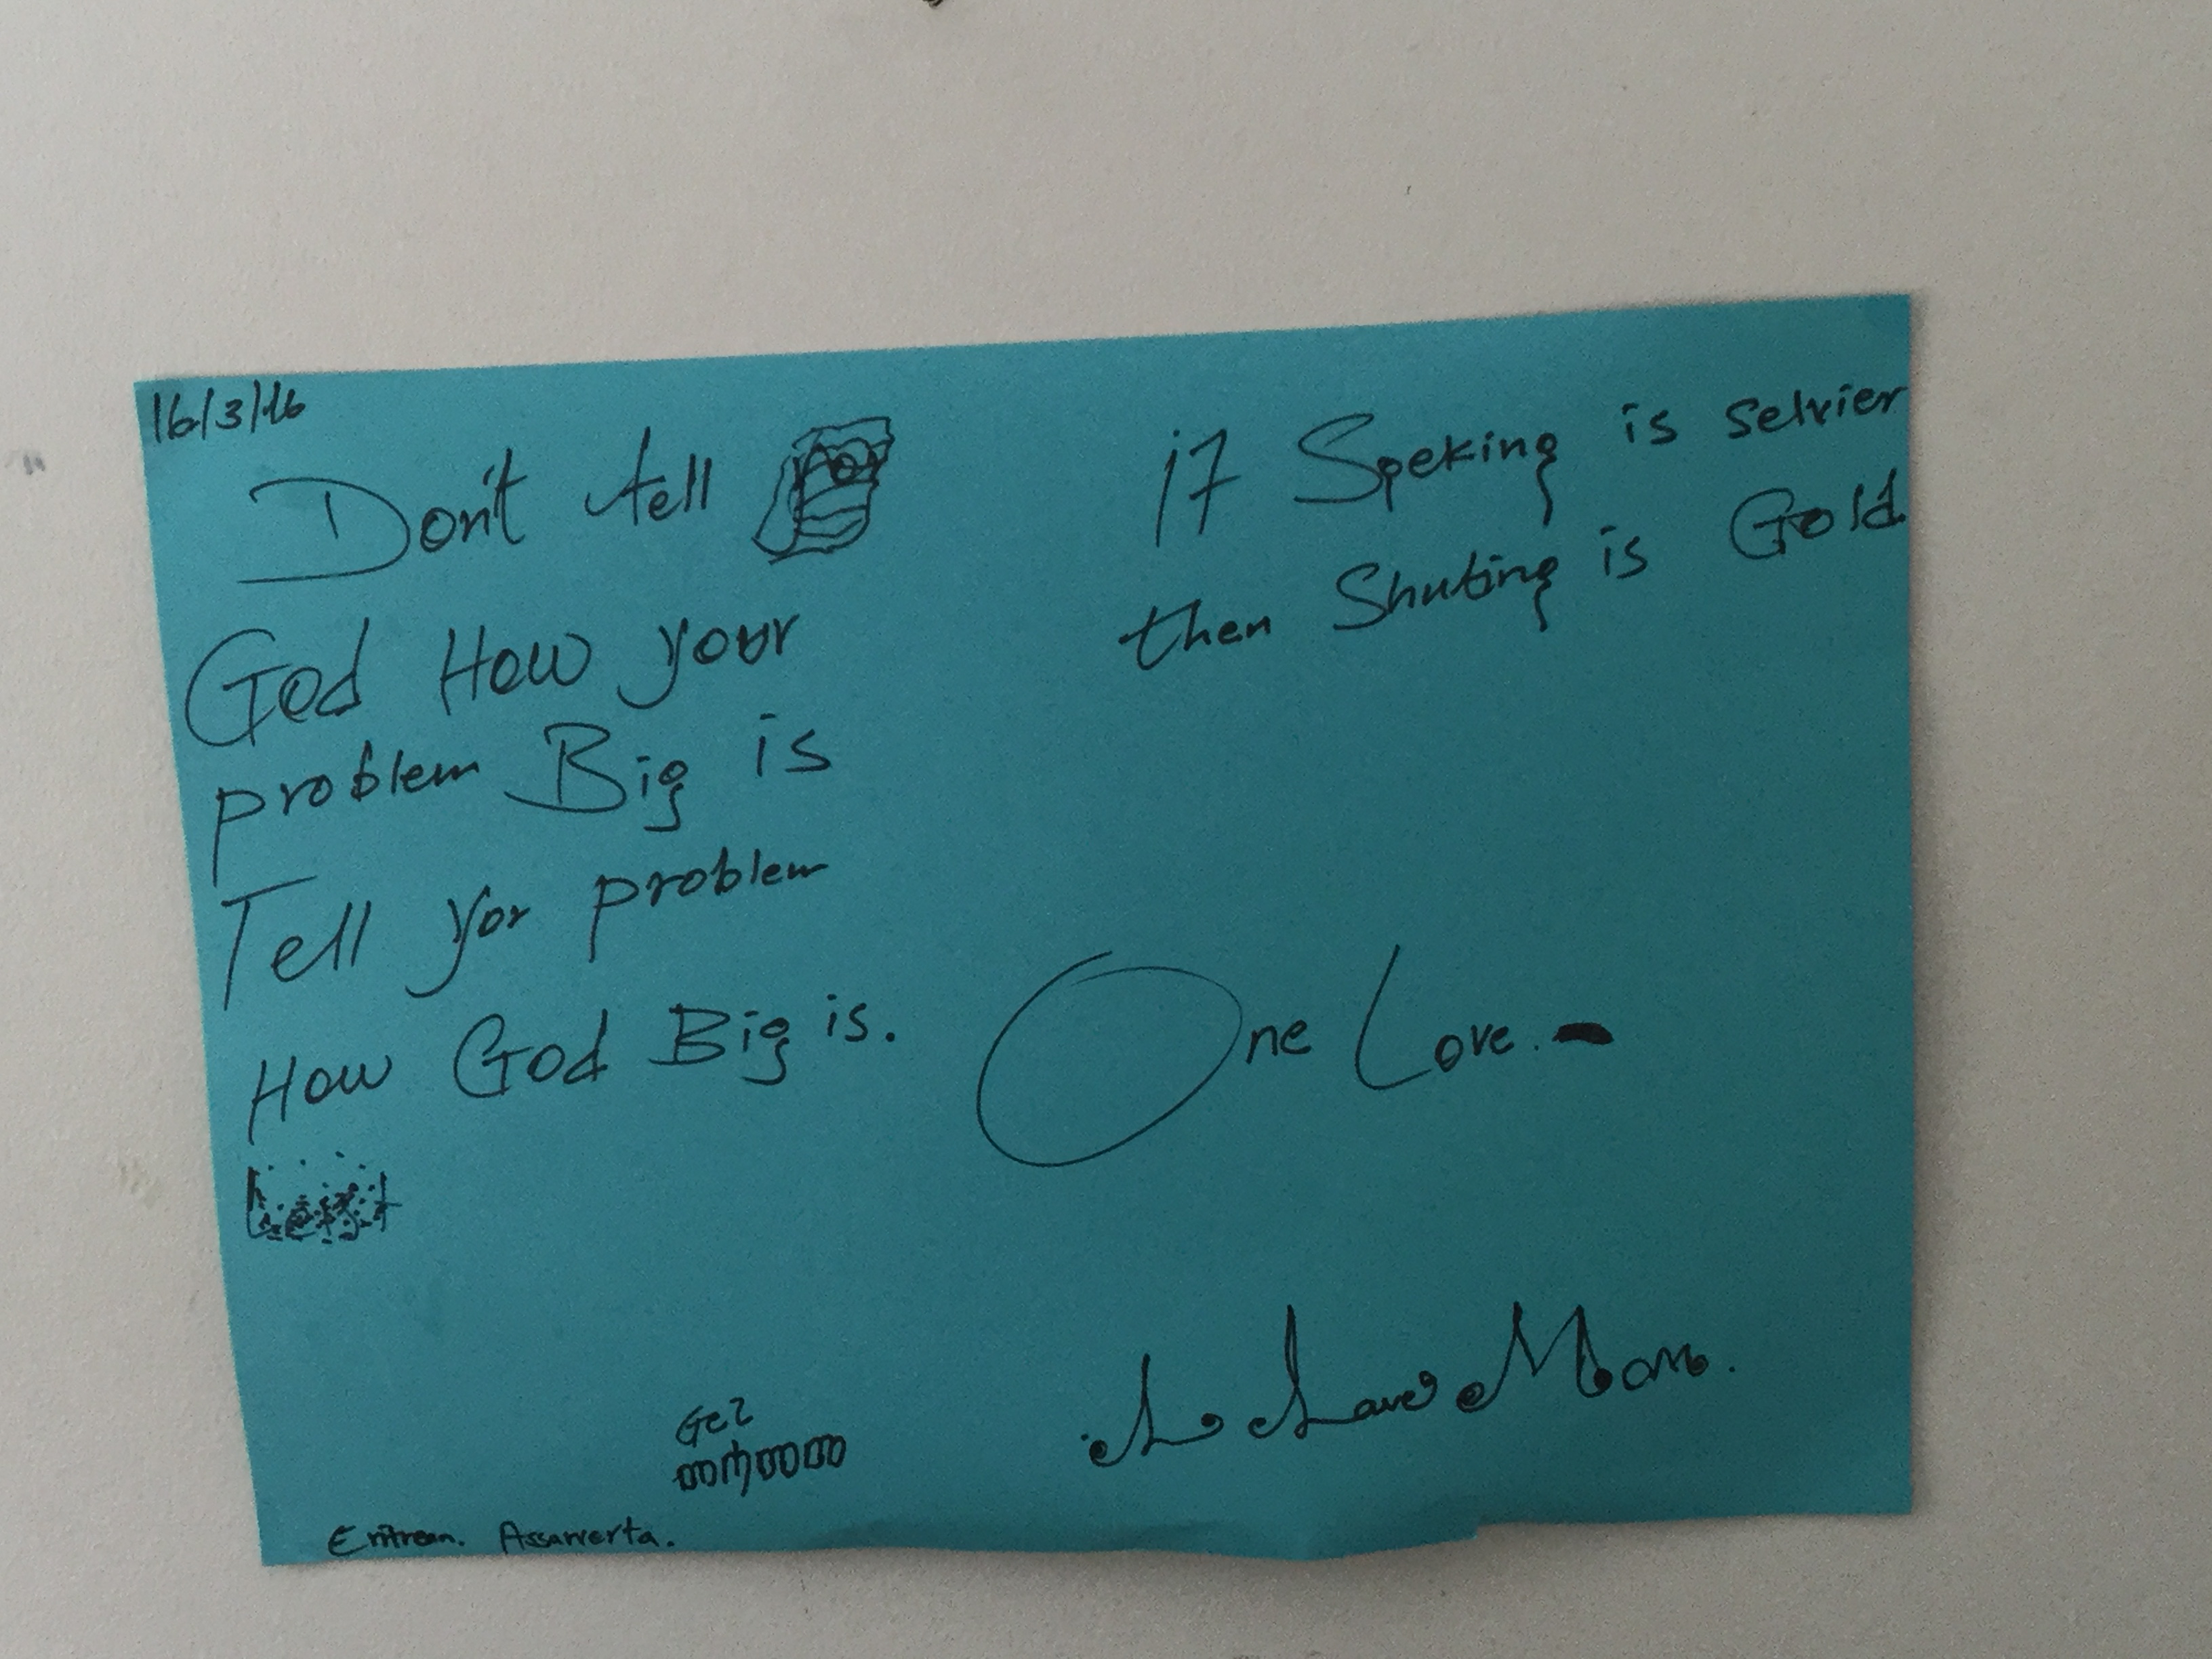 16/3/16
Don't tell
God How your
problem Big is
Tell yor problem
How God Big is.
if Speking is selvier
then Shuting is Gold.
One Love.
I Love Mom.
Eritrean. Assawerta.